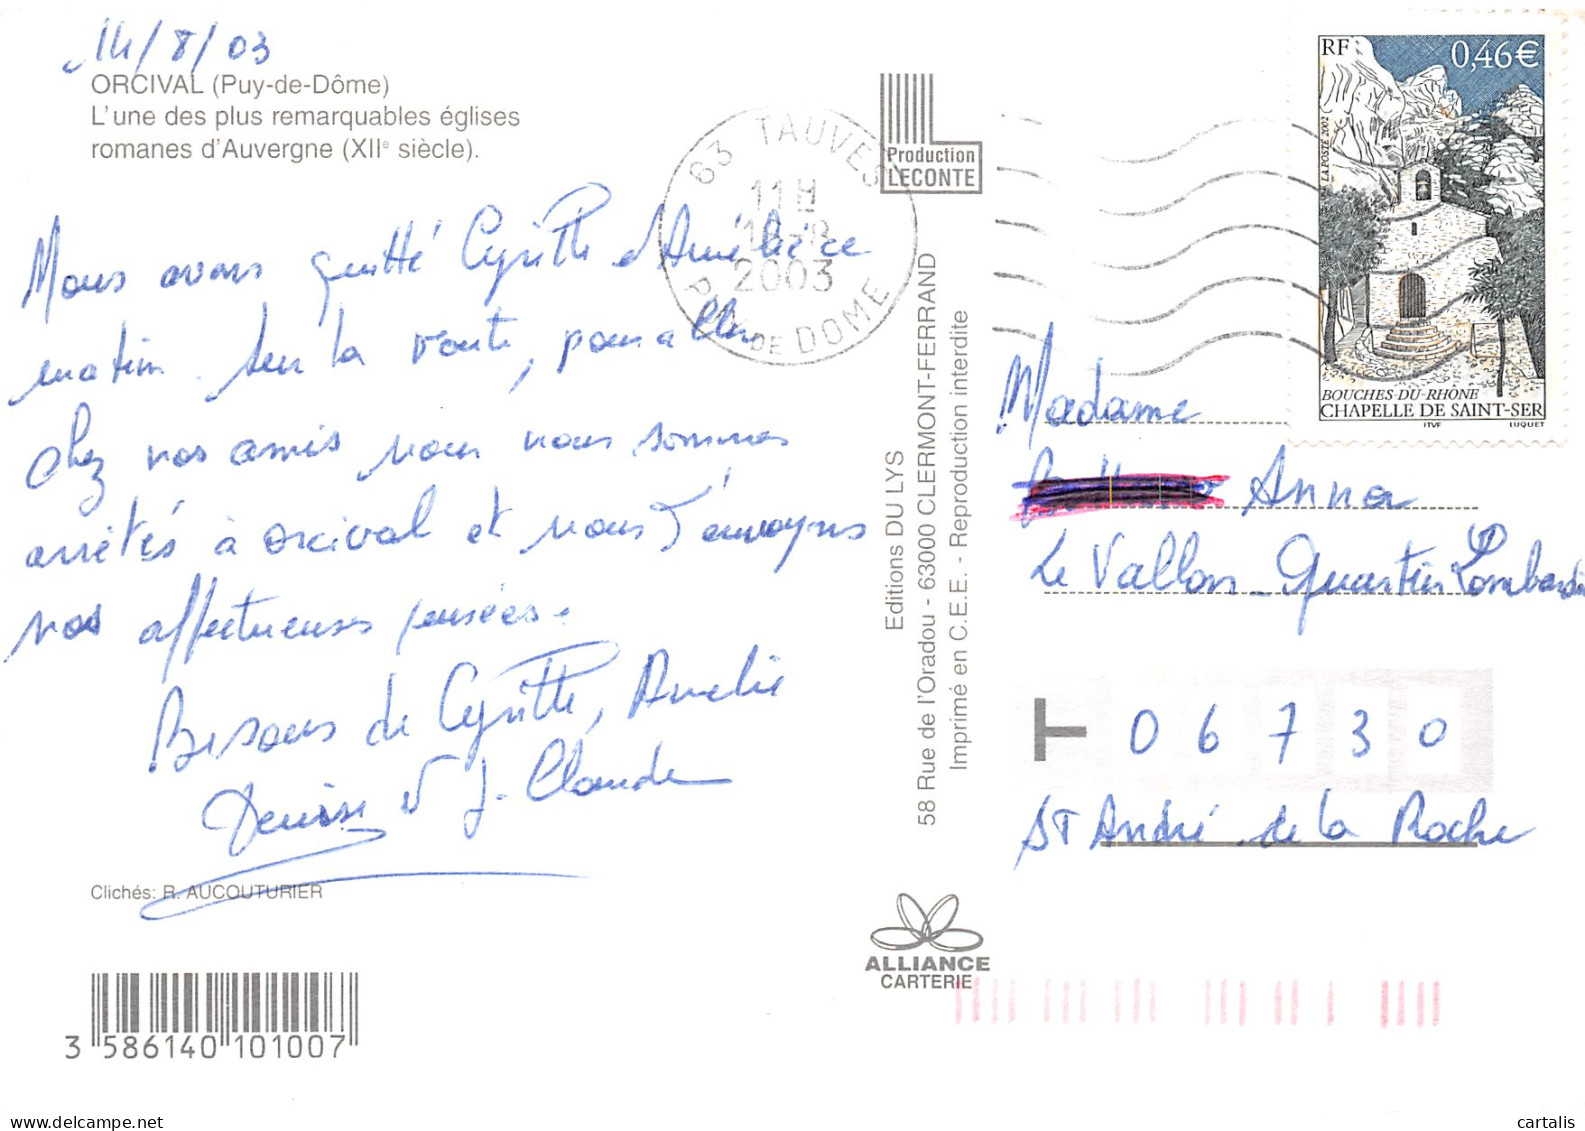 14/8/03
ORCIVAL (Puy-de-Dôme)
L'une des plus remarquables églises
romanes d'Auvergne (XIIe siècle).
Nous avons quitté Cyrille d'Amélie ce
matin sur la route, pour aller
chez nos amis nous nous sommes
arrêtés à Orcival et nous t'envoyons
nos affectueuses pensées.
Bisous de Cyrille, Amélie
Denise J. Claude
Clichés: R. AUCOUTURIER
3 586140 101007
63 TAUVES
11H
2003
PUY DE DOME
Production
LECONTE
Editions DU LYS
58 Rue de l'Oradou - 63000 CLERMONT-FERRAND
Imprimé en C.E.E. - Reproduction interdite
ALLIANCE
CARTERIE
RF 0,46€
LA POSTE 2002
BOUCHES-DU-RHÔNE
CHAPELLE DE SAINT-SER
ITVF LUQUET
Madame
Anna
Le Vallon - Quartier Lombardie
06730
ST André de la Roche
delcampe.net
cartalis